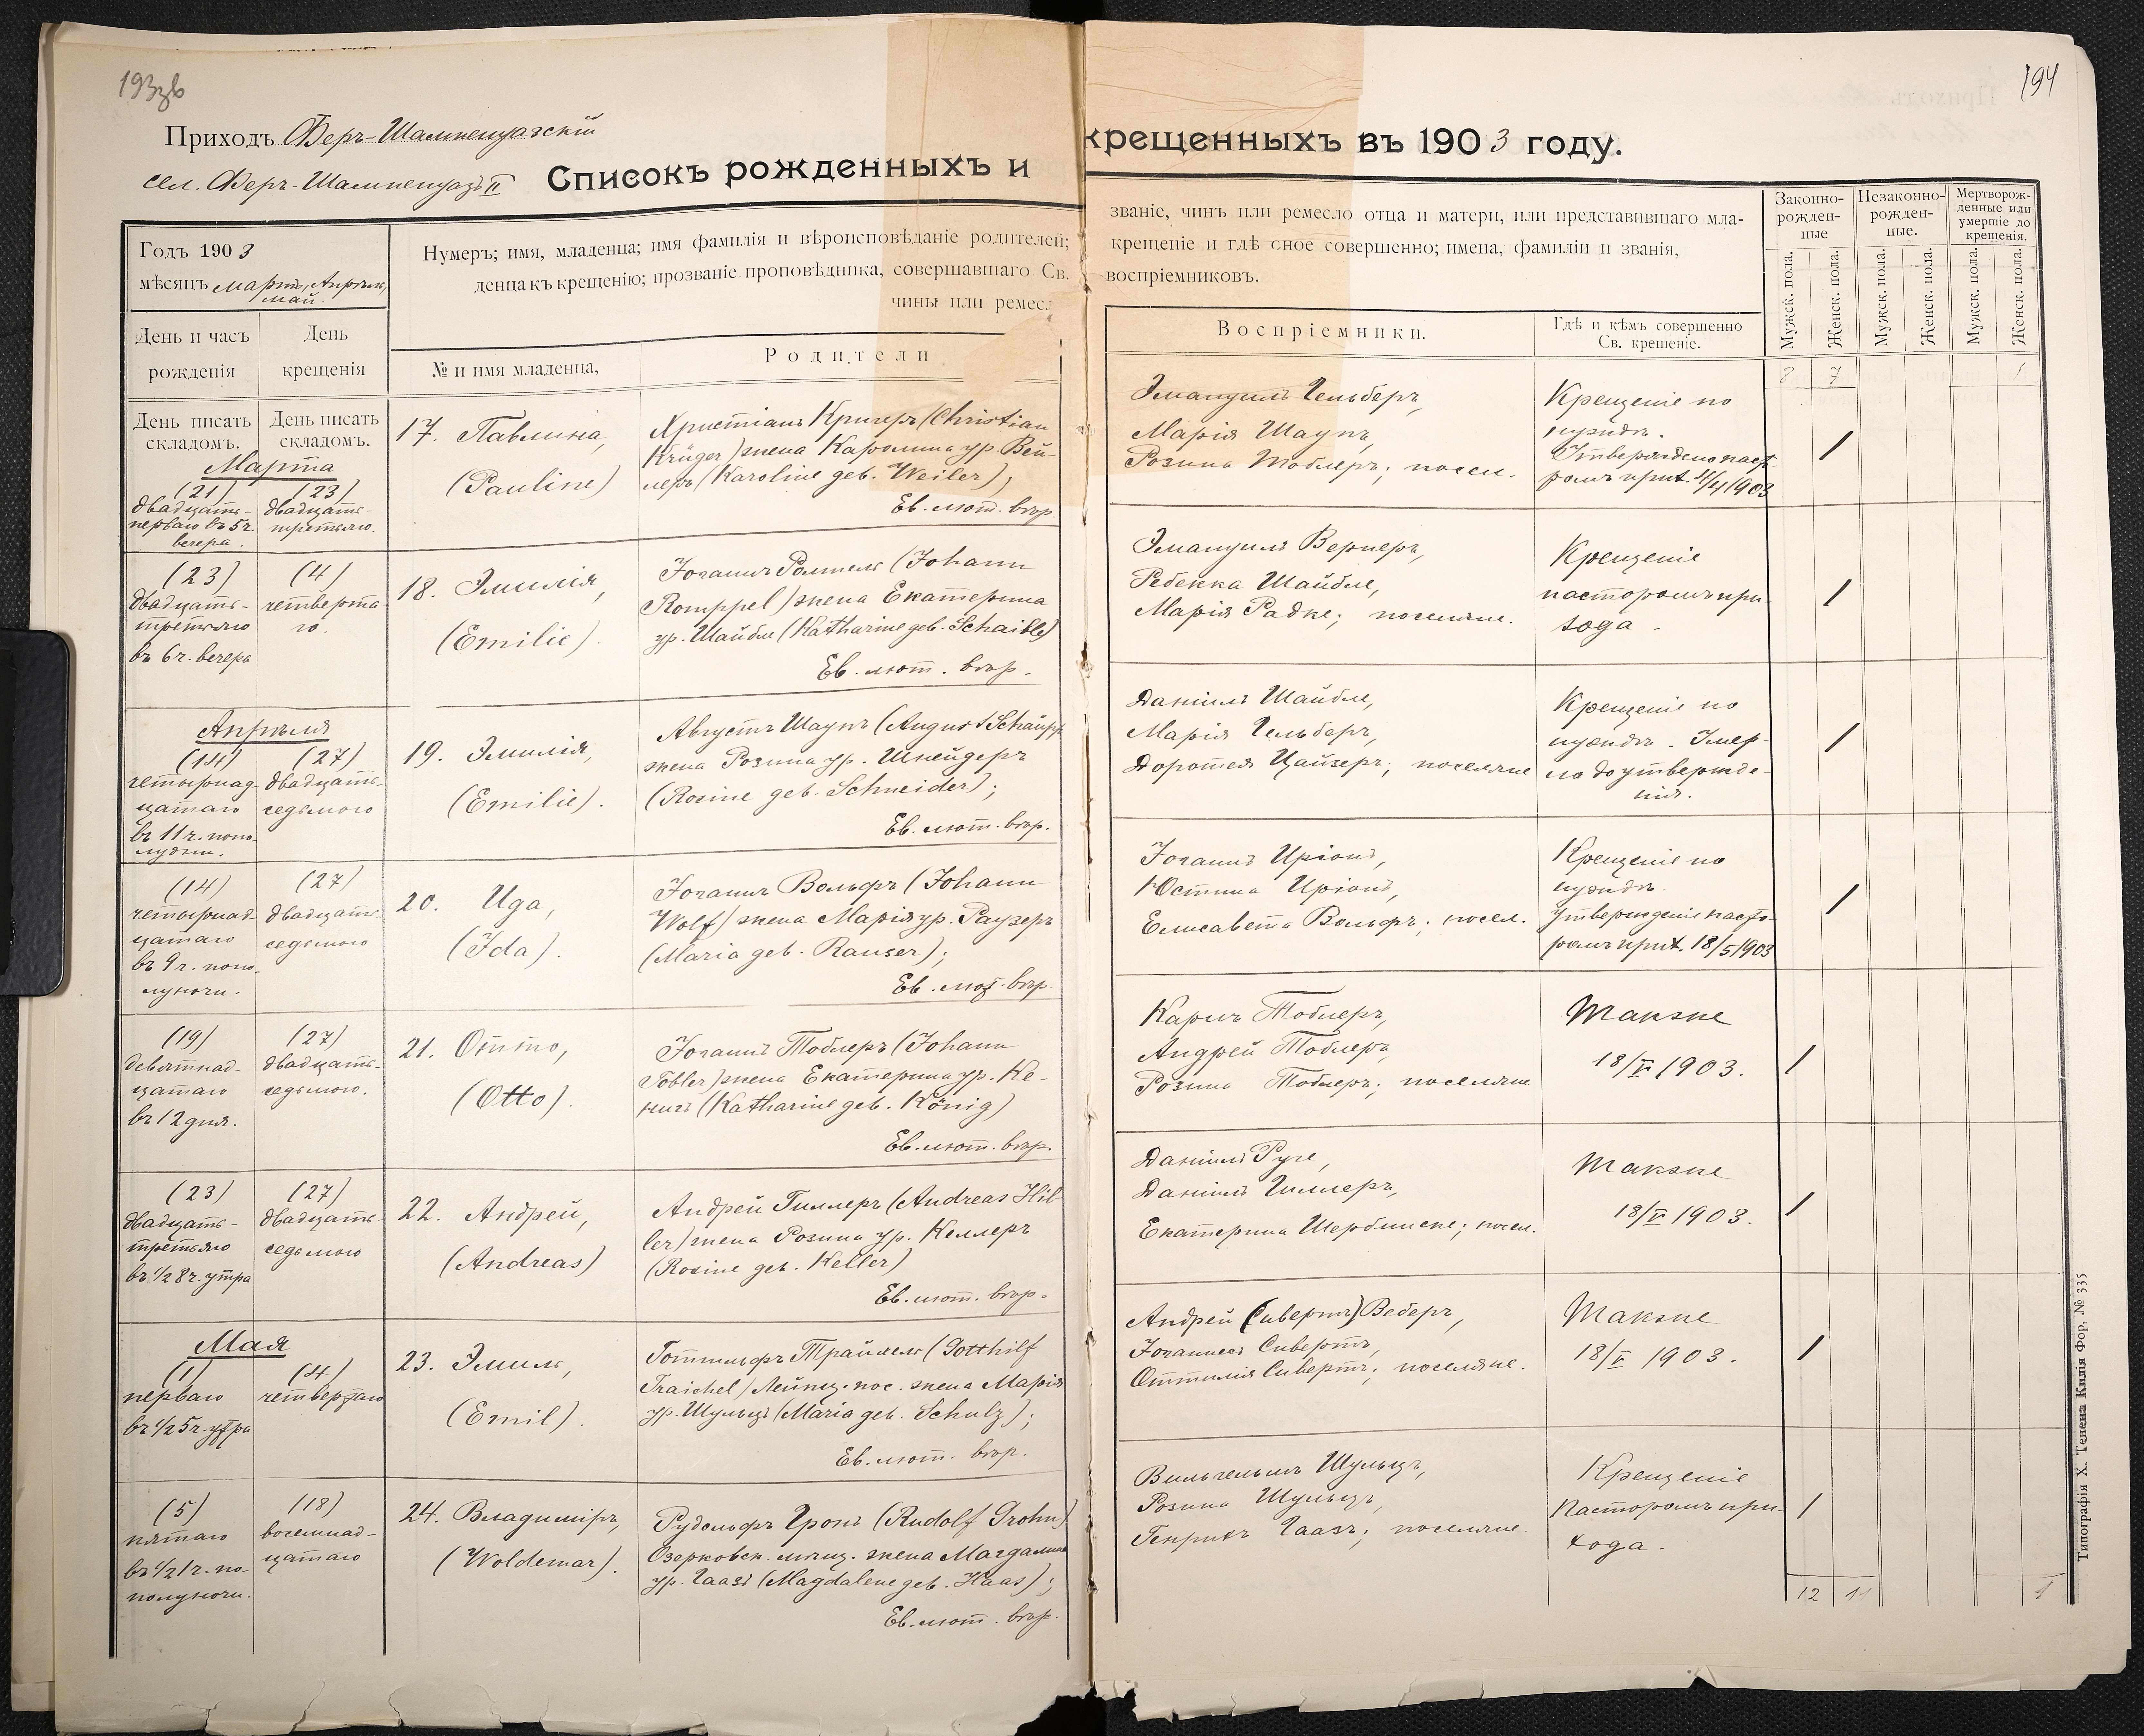 193зв
194
Приходъ Феръ-Шампенуазскій
сел. Феръ-Шампенуазъ II
Списокъ рожденныхъ и крещенныхъ въ 1903 году.
Годъ 1903
мѣсяцъ Мартъ, Апрѣль,
Май.
Нумеръ; имя, младенца; имя фамилія и вѣроисповѣданіе родителей; званіе, чинъ или ремесло отца и матери, или представившаго мла-
денца къ крещенію; прозваніе проповѣдника, совершавшаго Св. крещеніе и гдѣ оное совершенно; имена, фамиліи и званія,
чины или ремесл воспріемниковъ.
Законно-
рожден-
ные
Незаконно-
рожден-
ные.
Мертворож-
денные или
умершіе до
крещенія.
День и часъ
рожденія
День
крещенія
№ и имя младенца,
Родители
Воспріемники.
Гдѣ и кѣмъ совершенно
Св. крещеніе.
Мужск. пола.
Женск. пола.
Мужск. пола.
Женск. пола.
Мужск. пола.
Женск. пола.
8 7 1
День писать
складомъ.
День писать
складомъ.
Марта
(21)
двадцать-
перваго въ 5 ч.
вечера.
(23)
двадцать-
третьяго.
17. Павлина,
(Pauline)
Христіанъ Кригеръ (Christian
Krüger) жена Каролина ур. Вей-
леръ (Karoline geb. Weiler);
Ев. лют. вѣр.
Эмануилъ Гельберъ,
Марія Шаупъ,
Розина Тоблеръ; посел.
Крещеніе по
нуждѣ.
Утверждено паст-
ромъ прих. 4/4 1903
/
(23)
двадцать-
третьяго
въ 6 ч. вечера
(4)
четверта-
го.
18. Эмилія,
(Emilie).
Іоганнъ Ромпель (Johann
Romppel) жена Екатерина
ур. Шайбле (Katharine geb. Schaible)
Ев. лют. вѣр.
Эмануилъ Вернеръ,
Ребекка Шайбле,
Марія Радке; поселяне.
Крещеніе
пасторомъ при-
хода.
/
Апрѣля
(14)
четырнад-
цатаго
въ 11 ч. попо-
лудни.
(27)
двадцать-
седьмого
19. Эмилія,
(Emilie).
Августъ Шаупъ (August Schaupp
жена Розина ур. Шнейдеръ
(Rosine geb. Schneider);
Ев. лют. вѣр.
Даніилъ Шайбле,
Марія Гельберъ,
Доротея Цайзеръ; поселяне
Крещеніе по
нуждѣ. Умер-
ла до утвержде-
нія.
/
(14)
четырнад-
цатаго
въ 9 ч. попо-
луночи.
(27)
двадцать-
седьмого
20. Ида,
(Ida).
Іоганнъ Вольфъ (Johann
Wolf) жена Марія ур. Раузеръ
(Maria geb. Rauser);
Ев. лют. вѣр.
Іоганнъ Иріонъ,
Юстина Иріонъ,
Елисавета Вольфъ; посел.
Крещеніе по
нуждѣ.
Утвержденіе пасто-
ромъ прих. 18/5 1903
/
(19)
девятнад-
цатаго
въ 12 дня.
(27)
двадцать-
седьмого.
21. Отто,
(Otto).
Іоганнъ Тоблеръ (Johann
Tobler) жена Екатерина ур. Ке-
нигъ (Katharine geb. König)
Ев. лют. вѣр.
Карлъ Тоблеръ,
Андрей Тоблеръ,
Розина Тоблеръ; поселяне
Также
18/V 1903.
/
(23)
двадцать-
третьяго
въ 1/2 8 ч. утра
(27)
двадцать-
седьмого
22. Андрей,
(Andreas)
Андрей Гиллеръ (Andreas Hil-
ler) жена Розина ур. Келлеръ
(Rosine geb. Keller)
Ев. лют. вѣр.
Даніилъ Руге,
Даніилъ Гиллеръ,
Екатерина Шерблинске; посел.
Также
18/V 1903.
/
Мая
(1)
перваго
въ 1/2 5 ч. утра
(4)
четвертаго
23. Эмиль,
(Emil).
Готтильфъ Трайхель (Gotthilf
Traichel) Лейпц. пос. жена Марія
ур. Шульцъ (Maria geb. Schulz);
Ев. лют. вѣр.
Андрей (Сивертъ) Веберъ,
Іоганнесъ Сивертъ,
Оттилія Сивертъ; поселяне.
Также
18/V 1903.
/
(5)
пятаго
въ 1/2 1 ч. по-
полуночи.
(18)
восемнад-
цатаго
24. Владиміръ,
(Woldemar).
Рудольфъ Гронъ (Rudolf Grohn)
Озерковск. мѣщ. жена Магдалина
ур. Гаазъ (Magdalene geb. Haas);
Ев. лют. вѣр.
Вильгельмъ Шульцъ,
Розина Шульцъ,
Генрихъ Гаазъ; поселяне.
Крещеніе
Пасторомъ при-
хода.
/
12 11 1
Типографія Х. Тенена Килія Фор, № 335